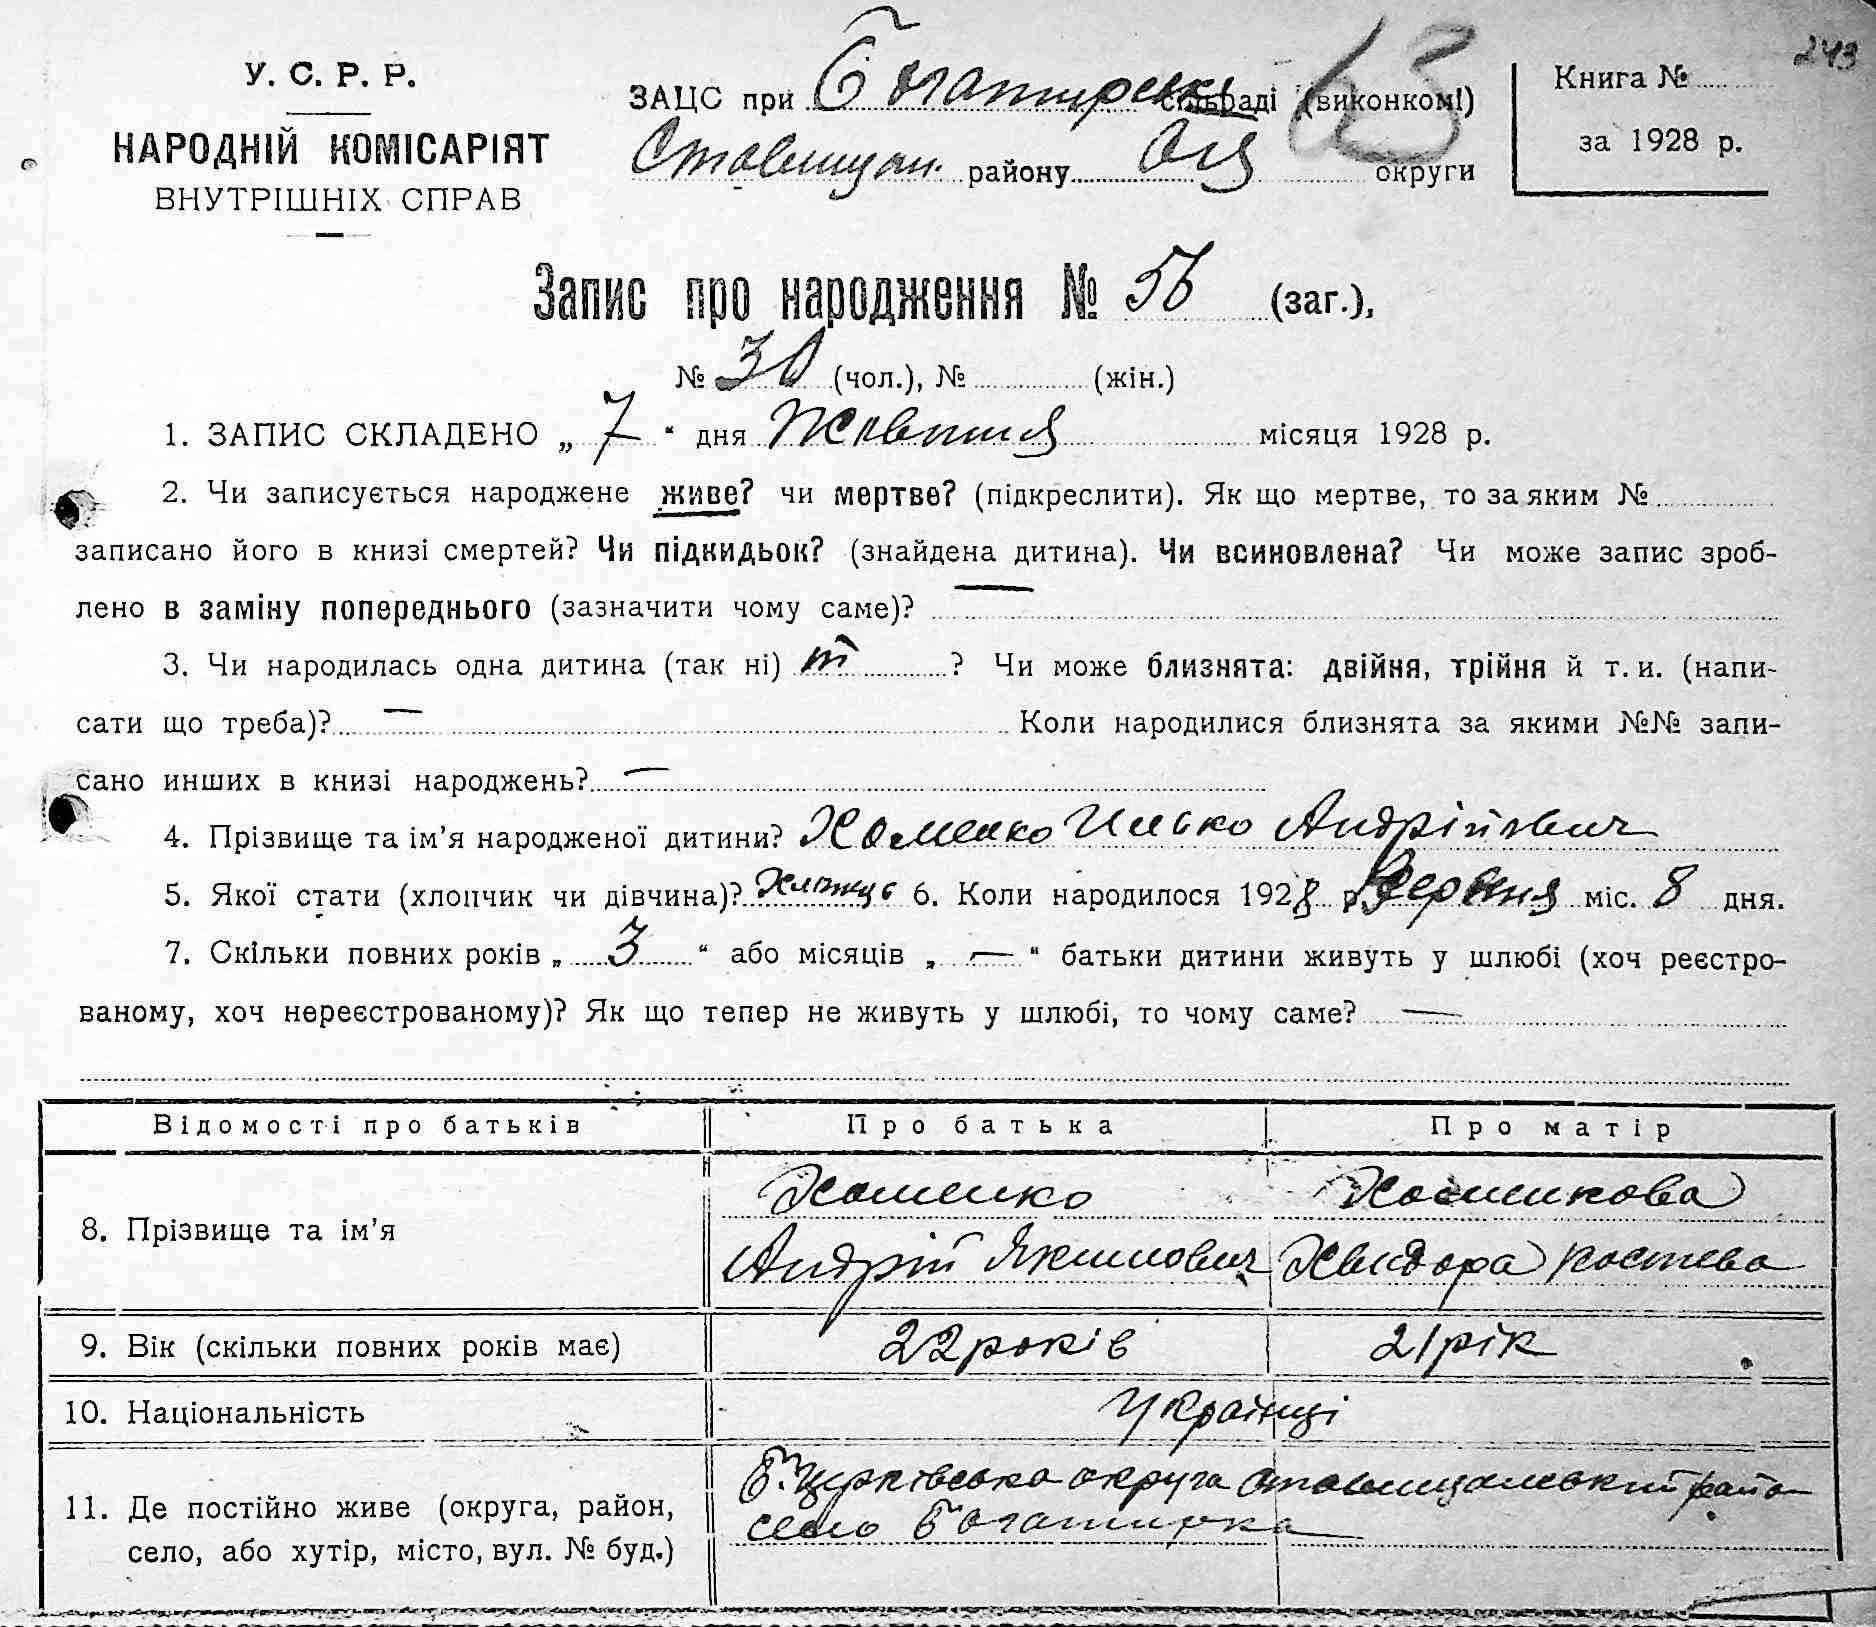 243
У. С. Р. Р.
НАРОДНІЙ КОМІСАРІЯТ
ВНУТРІШНІХ СПРАВ
ЗАЦС при Богатирськ сільраді (виконкомі)
63
Ставищан. району округи
Книга №
за 1928 р.
Запис про народження № 56 (заг.),
№ 30 (чол.), № (жін.)
1. ЗАПИС СКЛАДЕНО „ 7 “ дня Жовтня місяця 1928 р.
2. Чи записується народжене живе? чи мертве? (підкреслити). Як що мертве, то за яким №
записано його в книзі смертей? Чи підкидьок? (знайдена дитина). Чи всиновлена? Чи може запис зроб-
лено в заміну попереднього (зазначити чому саме)? —
3. Чи народилась одна дитина (так ні) т ? Чи може близнята: двійня, трійня й т. и. (напи-
сати що треба)? — Коли народилися близнята за якими №№ запи-
сано инших в книзі народжень? —
4. Прізвище та ім’я народженої дитини? Хоменко Илько Андрійович
5. Якої стати (хлопчик чи дівчина)? Хлопець 6. Коли народилося 1928 р. міс. 8 дня.
7. Скільки повних років „ 3 “ або місяців „ — “ батьки дитини живуть у шлюбі (хоч реєстро-
ваному, хоч нереєстрованому)? Як що тепер не живуть у шлюбі, то чому саме? —
Відомості про батьків Про батька Про матір
8. Прізвище та ім’я Хоменко Хоменкова
Андрій Якимович Хвидора Костева
9. Вік (скільки повних років має) 22 років 21 рік
10. Національність Українці
11. Де постійно живе (округа, район, Б. Церківська округа Ставищанський район
село, або хутір, місто, вул. № буд.) село Богатирка